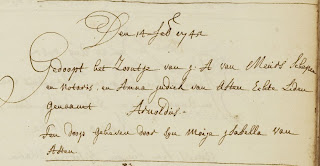 Den 14 feb 1742
Gedoopt het Zoontje van j: A van Meurs Schepen
en Notaris en Anna judick van Asten Echte Lieden
genaamt Arnoldus.
Ten doop geheven door syn Moije ysabella van
Asten